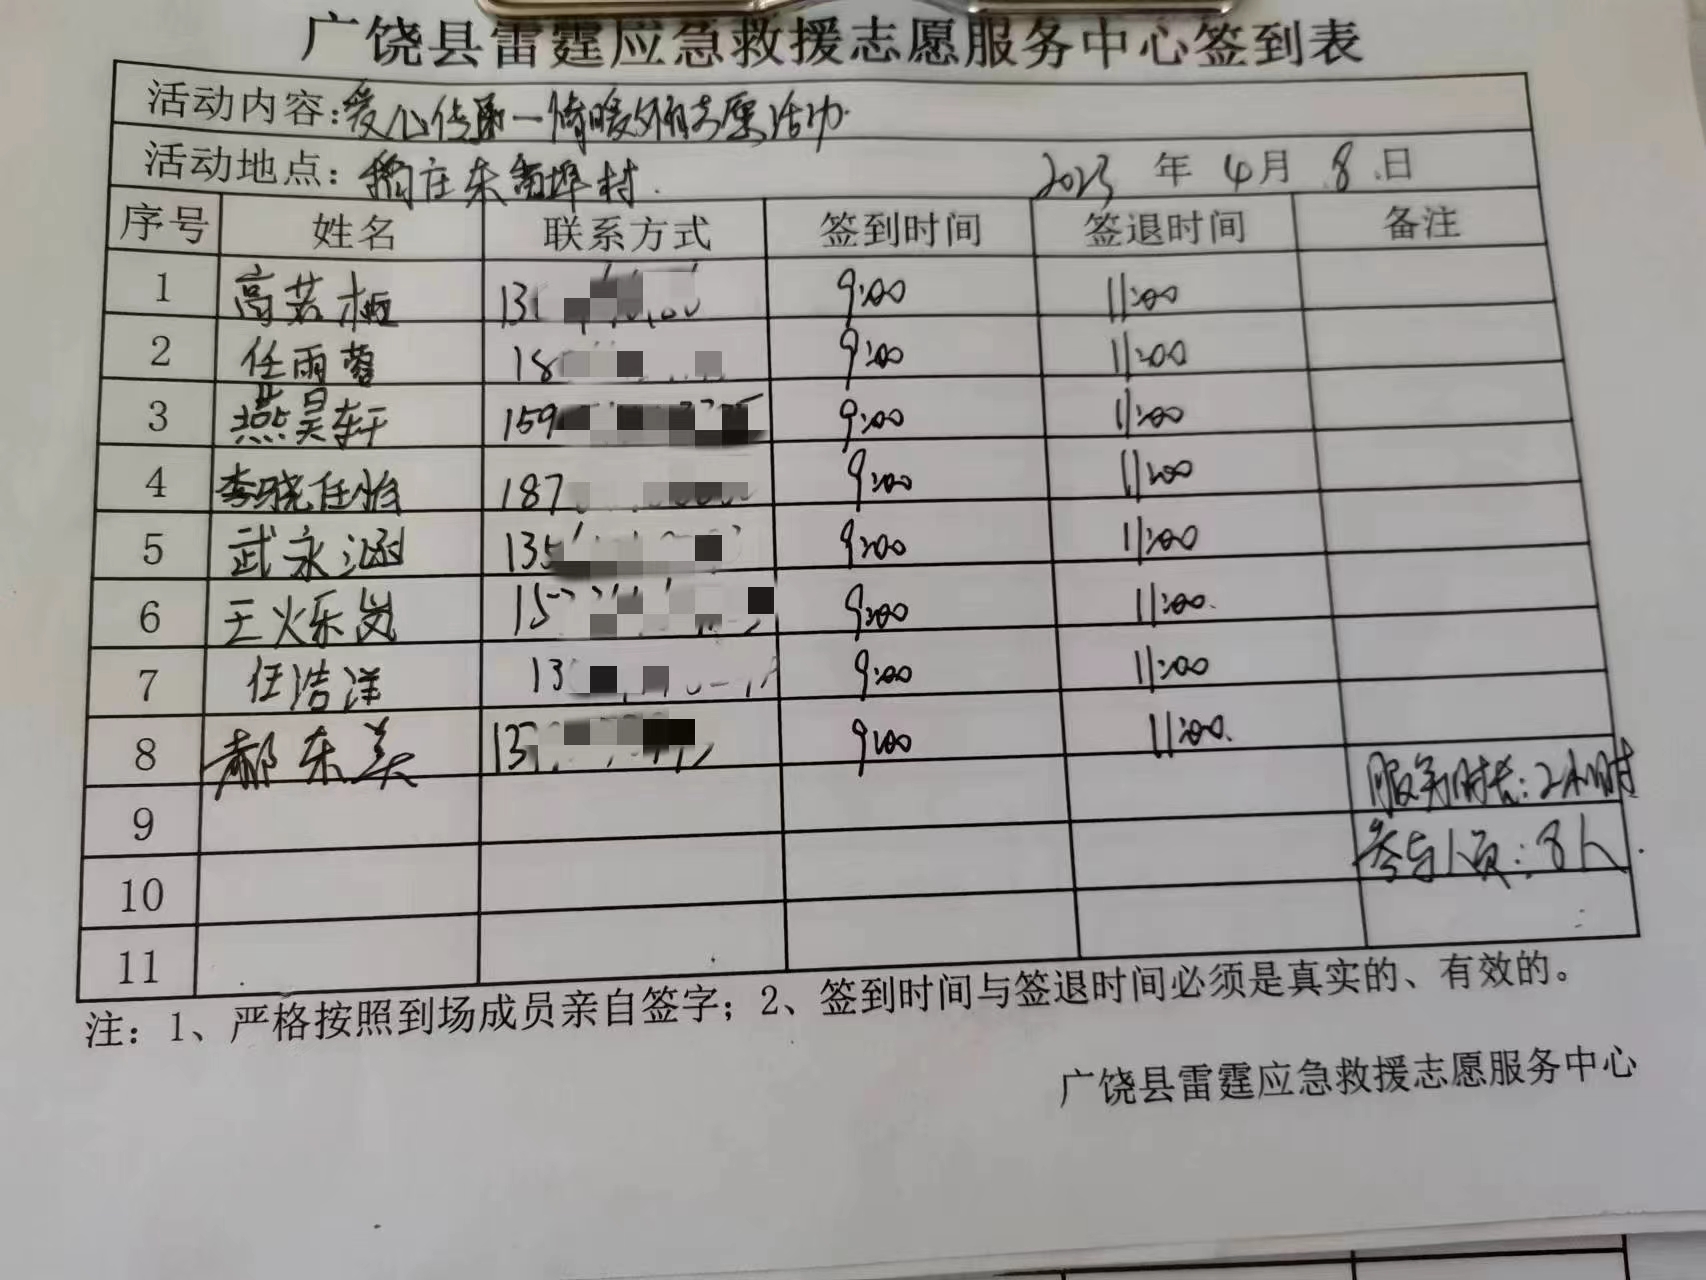 广饶县雷霆应急救援志愿服务中心签到表
活动内容:爱心传承一情暖夕阳志愿活动
活动地点: 稻庄东雷埠村. 2023 年 4月 8 日
序号 姓名 联系方式 签到时间 签退时间 备注
1 高若栖 13 9:00 11:00
2 任雨蓉 18 9:00 11:00
3 燕昊轩 159 9:00 11:00
4 李晓任怡 187 9:00 11:00
5 武永涵 135 9:00 11:00
6 王烁岚 15 9:00 11:00.
7 任浩洋 13 9:00 11:00
8 郝东美 13 9:00 11:00.
服务时长:2小时
9
参与人员:8人.
10
11
注: 1、严格按照到场成员亲自签字; 2、签到时间与签退时间必须是真实的、有效的。
广饶县雷霆应急救援志愿服务中心